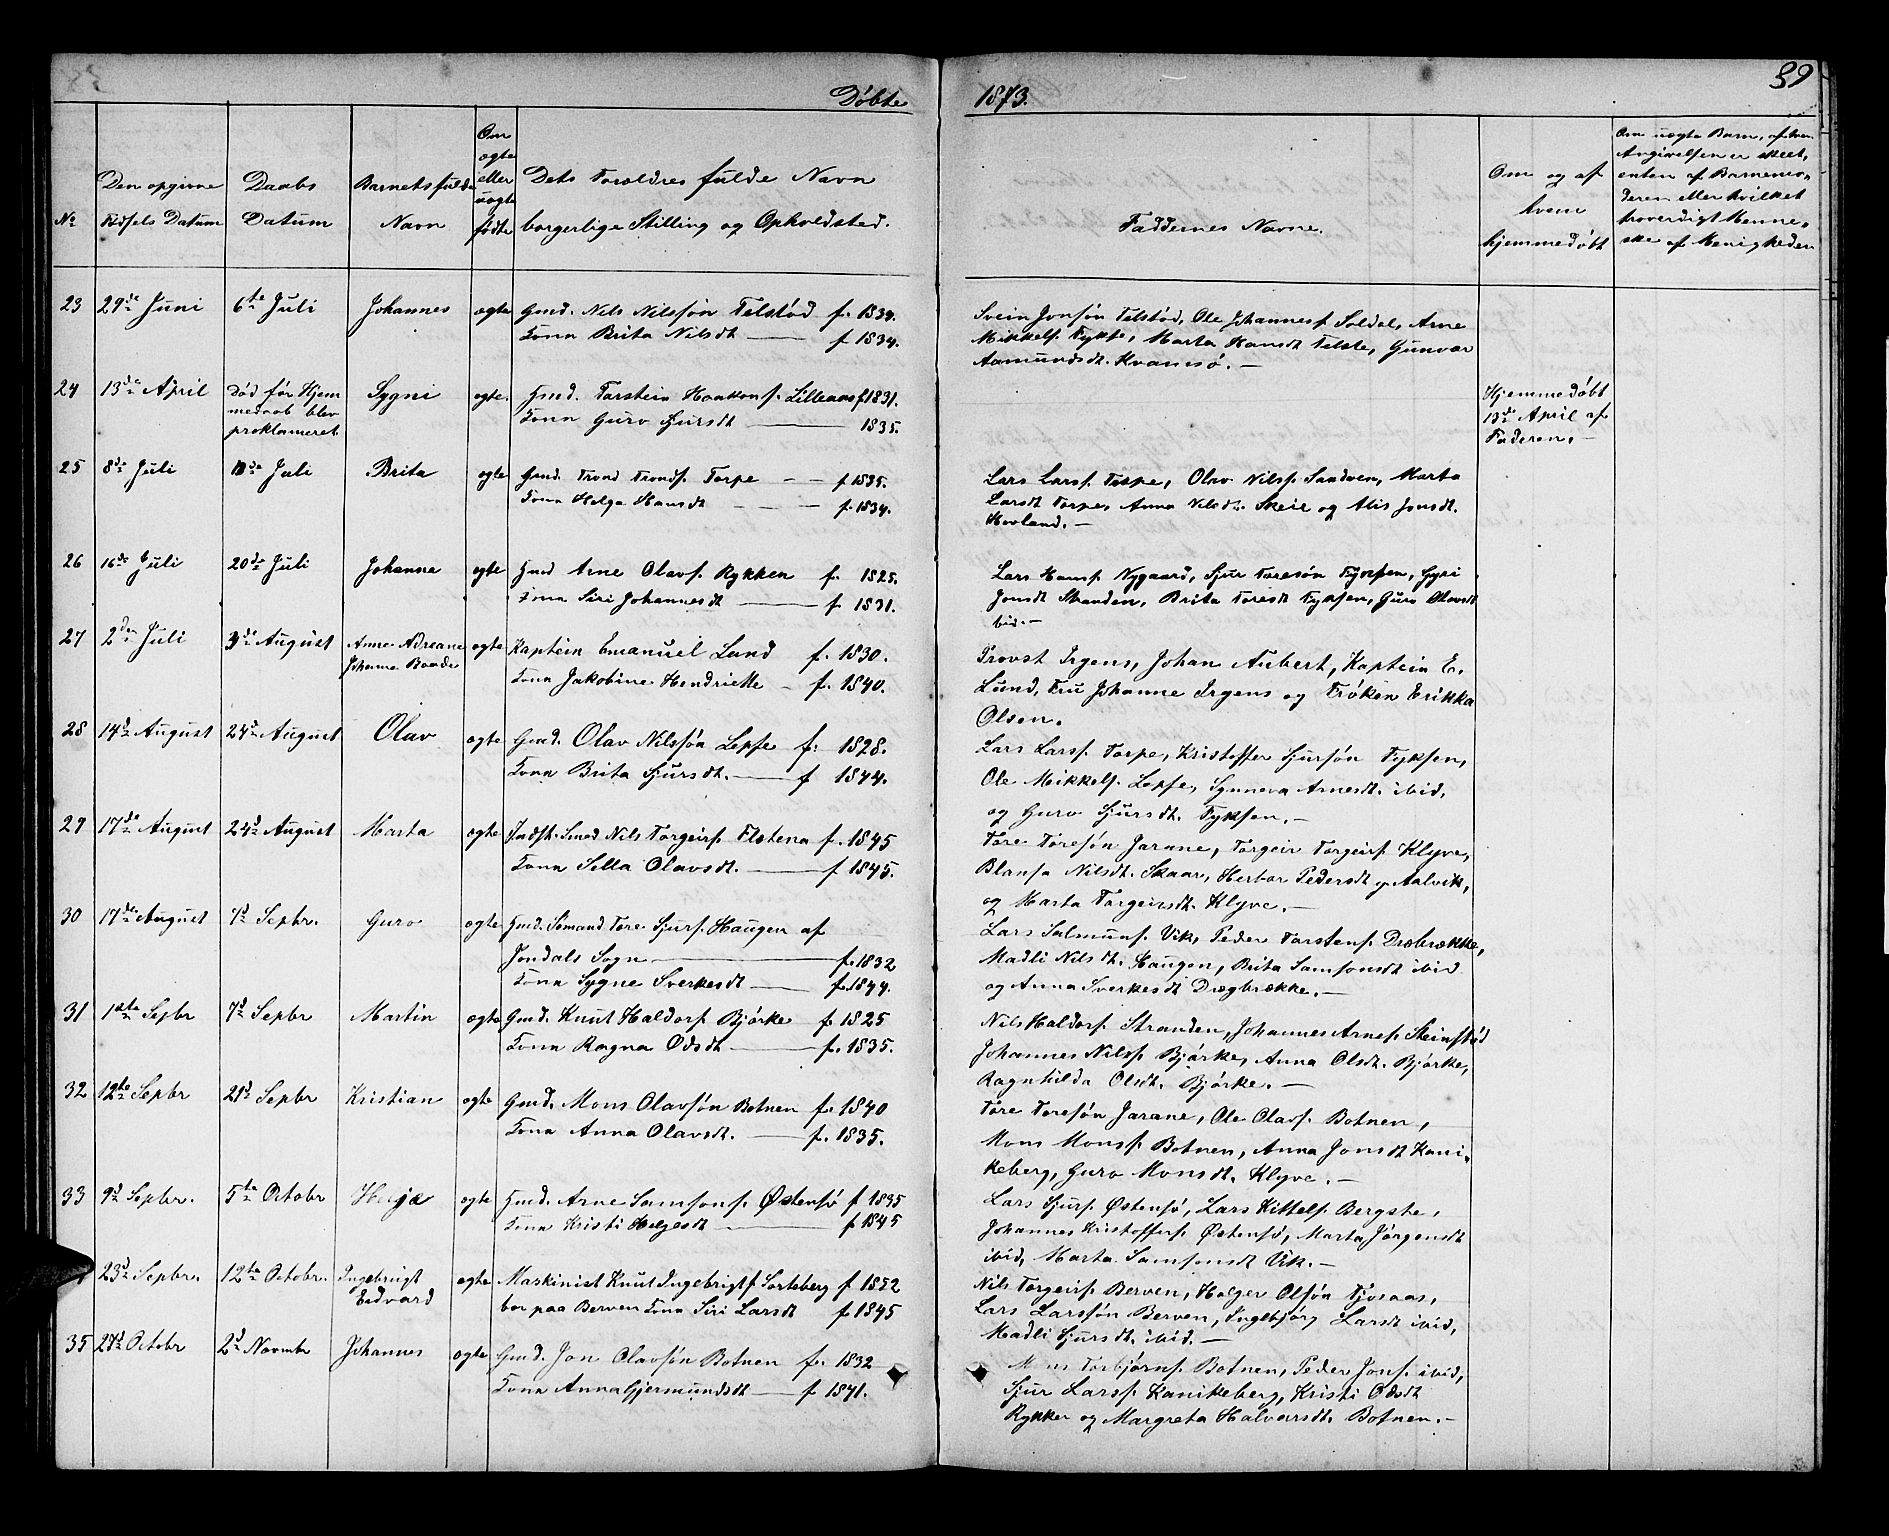 Døbte 1873. 39
No
Den opgivne Fødsels Datum
Daabs Datum
Barnets fulde Navn
Om ægte eller uægte født
Dets Forældres fulde Navn borgerlige Stilling og Opholdsted.
Faddernes Navne.
Om og af hvem hjemmedøbt
Om uægte Barn, af hvem Angivelsen er skeet, enten af Barnemoderen eller hvilket troverdigt Menneske af Menigheden
23 29de Juni 6te Juli Johannes ægte Gmd. Nils Nilssøn Telstød f. 1834.
Kona Brita Nilsdt f 1834.
Svein Jonsøn Telstød, Ole Johannesf. Soldal, Arne
Mikkelf. Tykke, Marta Hansdt Telste, Gunvor
Aamundsdt. Kvamsø. —
24 13de April Død før Hjem Sygni ægte. Gmd. Torstein Haakonf. Lilleaas f 1831.
medaab blev
proklameret
Kona Guro Sjursdt 1835.
Hjemmedøbt
13de April af
Faderen. —
25 8de Juli 13de Juli Brita ægte Gmd. Trond Trondf. Torpe f 1835.
Kona Helga Hansdt f. 1834.
Lars Larsf. Torpe, Olav Nilsf. Sandven, Marta
Larsdt Torpe, Anna Nilsdt. Skeie og Alis Jonsdt.
Hovland. —
26 16de Juli 20de Juli Johanna ægte Gmd Arne Olavf. Rykken f. 1825.
Kona Siri Johannesdt f. 1831.
Lars Hansf. Nygaard, Sjur Toresøn Tyksen, Gyri
Jonsdt Stranden, Brita Toresdt Tyksen, Guro Olavsdt
ibid. —
27 2den Juli 3de August Anna Adreane ægte Kaptein Emanuel Lund f. 1830.
Johanna
Kona Jakobine Hendriette f. 1840.
Provst Irgens, Johan Aubert, Kaptein E.
Lund, Fru Johanne Irgens og Frøken Erikka
Olsen.
28 14d August 24d August Olav ægte Gmd. Olav Nilssøn Lepse f. 1828.
Kona Brita Sjursdt. f 1844.
Lars Larsf. Torpe, Kristoffer Sjursøn Tyksen,
Ole Mikkelf. Lepse, Synneva Arnesdt. ibid,
og Guro Sjursdt. Tyksen. —
29 17de August 24d August Marta ægte Indst. Smed Nils Torgeirf. Flatena f. 1845
Kona Sella Olavsdt. f 1845.
Tore Toresøn Jarane, Torgeir Torgeirf. Klyve,
Blansa Nilsdt. Skaar, Herbor Pedersdt y. Aalvik,
og Marta Torgeirsdt. Klyve. —
30 17de August 7d Sepbr. Guro ægte Gmd. Sømand Tore Sjurf. Haugen af
Jondals Sogn f. 1832
Kona Sygne Sverkesdt f. 1844.
Lars Salmunf. Vik, Peder Torstenf. Drebrekke,
Madli Nilsdt. Haugen, Brita Samsonsdt ibid
og Anna Sverkesdt Drægbrække. —
31 1ste Sepbr 7d Sepbr Martin ægte Gmd. Knut Haldorf. Bjørke f. 1825
Kona Ragna Odsdt f. 1835.
Nils Haldorf. Stranden, Johannes Arnef. Steinstød
Johannes Nilsf. Bjørke, Anna Olsdt. Bjørke,
Ragnhilda Olsdt. Bjørke. —
32 12te Sepbr 21d Sepbr Kristian ægte Gmd. Mons Olavsøn Botnen f. 1840
Kona Anna Olavsdt. f. 1835.
Tore Toresøn Jarane, Ole Olavf. Botnen,
Mons Monsf. Botnen, Anna Jonsdt Kani-
keberg, Guro Monsdt. Klyve. —
33 9d Sepbr. 5te Octobr Helge ægte Gmd. Arne Samsonf. Østensø f 1835
Kona Kristi Helgesdt f 1845
Lars Sjurf. Østensø, Lars Kittelf. Bergste,
Johannes Kristofferf. Østensø, Marta Jørgensdt
ibid, Marta Samsonsdt Vik. —
23d Sepbr. 12te Octobr. Ingebrigt ægte Maskinist Knut Ingebrigtf Sorteberg f 1852
Edvard bor paa Berven Kona Siri Larsdt f 1845
Nils Torgeirf Berven, Holger Olsøn Tjosaas,
Lars Larssøn Berven, Ingebjørg Larsdt ibid,
Madli Sjursdt. ibid. —
35 27d Octobr 2d Novmbr Johannes ægte Gmd. Jon Olavsøn Botnen f. 1832
Kona Anna Gjermundsdt f 1841.
Mons Torbjørnf. Botnen, Peder Jonf. ibid,
Sjur Larsf. Kanikeberg, Kristi Odsdt
Rykken og Margreta Halvorsdt. Botnen. —